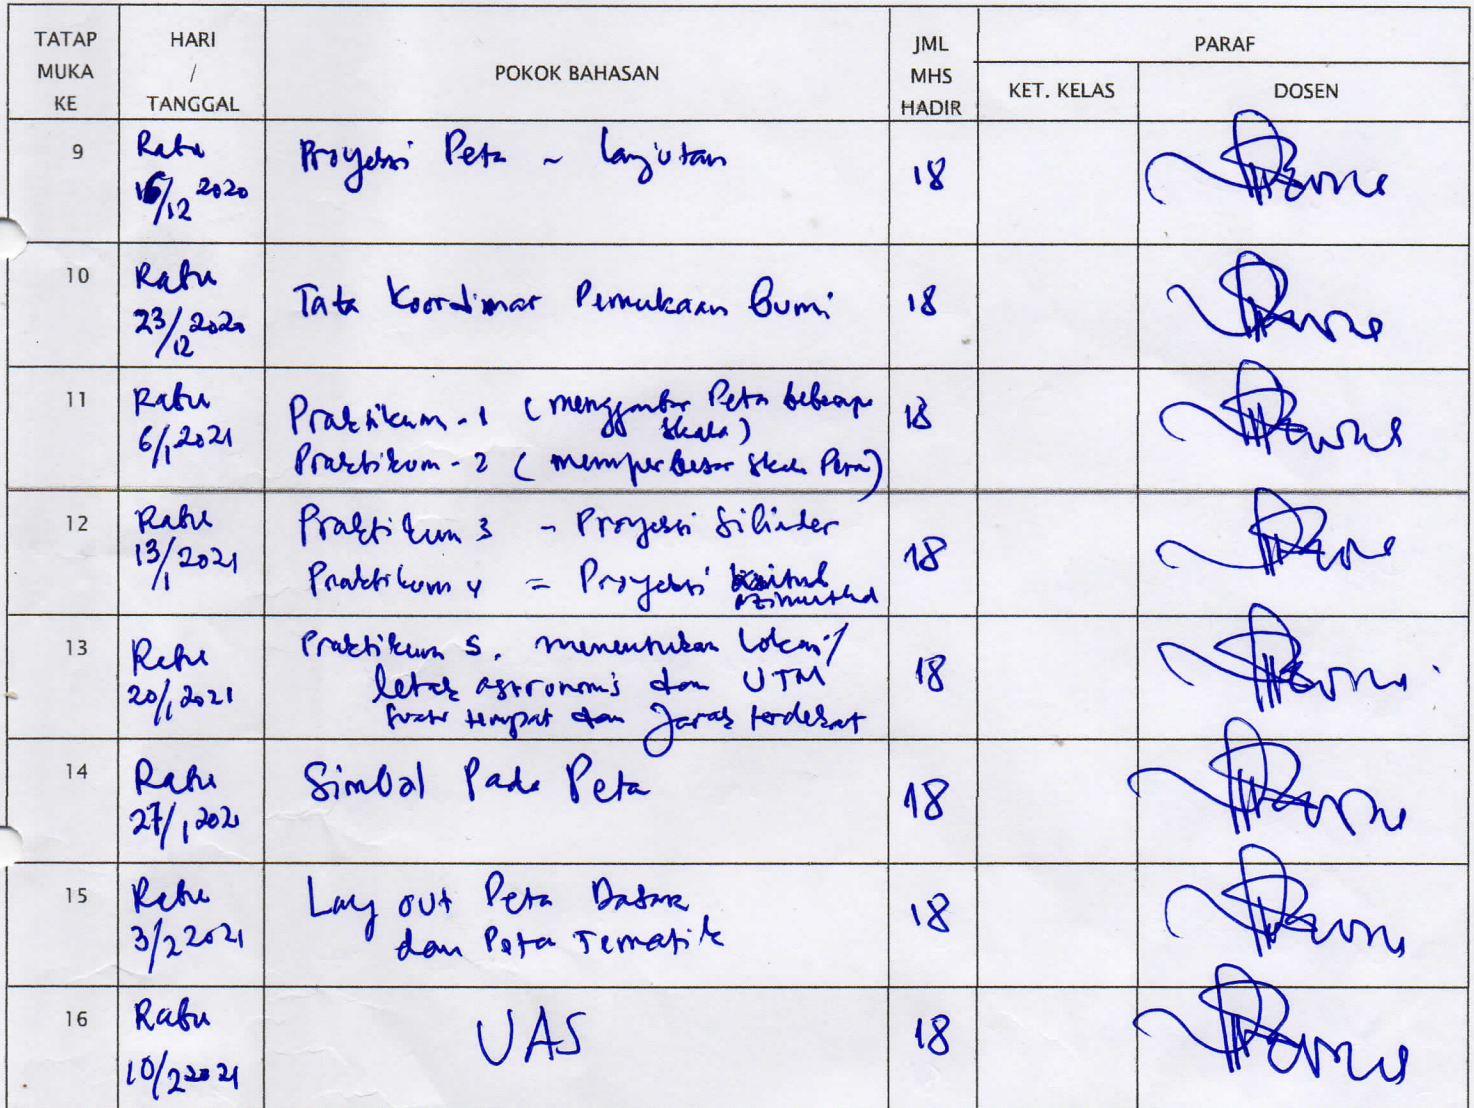 TATAP MUKA KE
HARI / TANGGAL
POKOK BAHASAN
JML MHS HADIR
PARAF
KET. KELAS
DOSEN
9 Rabu 16/12 2020 Proyeksi Peta ~ lanjutan 18
10 Rabu 23/12 2020 Tata Koordinat Permukaan Bumi 18
11 Rabu 6/1 2021 Praktikum - 1 (menggambar Peta beberapa skala) 18
Praktikum - 2 (memperbesar skala Peta)
12 Rabu 13/1 2021 Praktikum 3 - Proyeksi Silinder 18
Praktikum 4 = Proyeksi azimuthal
13 Rabu 20/1 2021 Praktikum 5. menentukan lokasi/ 18
letak astronomis dan UTM
suatu tempat dan Jarak terdekat
14 Rabu 27/1 2021 Simbol Pada Peta 18
15 Rabu 3/2 2021 Lay out Peta Dasar 18
dan Peta Tematik
16 Rabu 10/2 2021 UAS 18